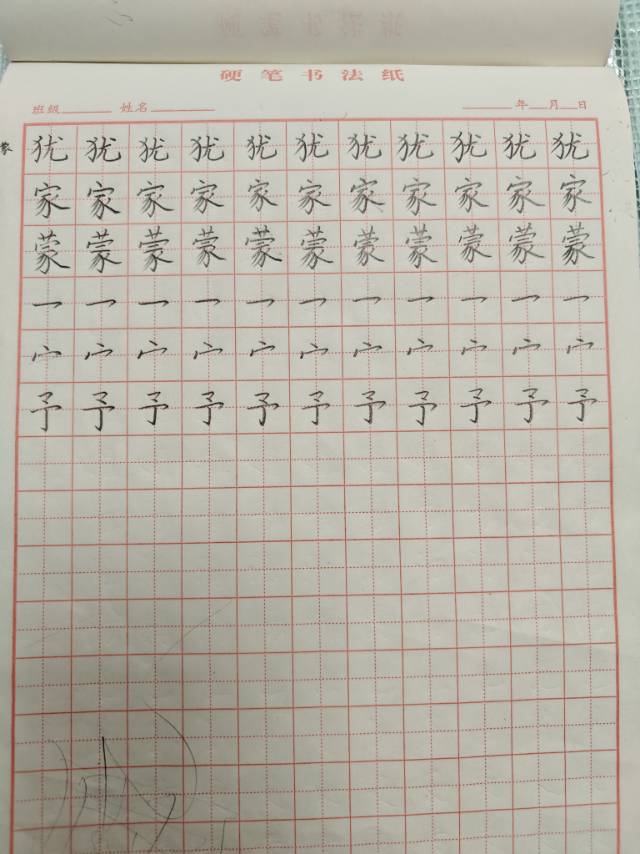 硬笔书法纸
班级 姓名 年 月 日
犹 犹 犹 犹 犹 犹 犹 犹 犹 犹 犹
家 家 家 家 家 家 家 家 家 家 家
蒙 蒙 蒙 蒙 蒙 蒙 蒙 蒙 蒙 蒙 蒙
冖 冖 冖 冖 冖 冖 冖 冖 冖 冖 冖
宀 宀 宀 宀 宀 宀 宀 宀 宀 宀 宀
予 予 予 予 予 予 予 予 予 予 予